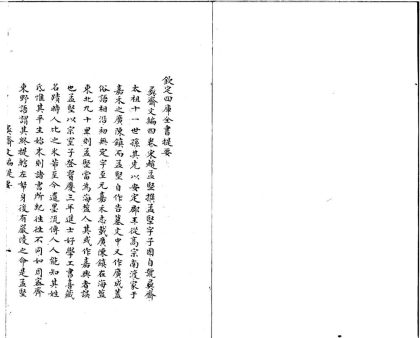 欽定四庫全書提要
彝齋文編四卷宋趙孟堅撰孟堅字子固自號彝齋
太祖十一世孫其先以安定郡王從高宗南渡家于
嘉禾之廣陳鎮而孟堅自作告墓文中又作廣成蓋
俗語相沿初無定字至元嘉禾志載廣陳鎮在海鹽
東北九十里則孟堅當為海鹽人其或作嘉興者誤
也孟堅以宗室子登寶慶三年進士好學工書喜藏
名蹟時人比之米芾至今遺墨流傳人人能知其姓
氏惟其平生始末則諸書所紀往往不同如周密齊
東野語謂其終提轄左帑身後有嚴陵之命是孟堅
彝齋文編提要